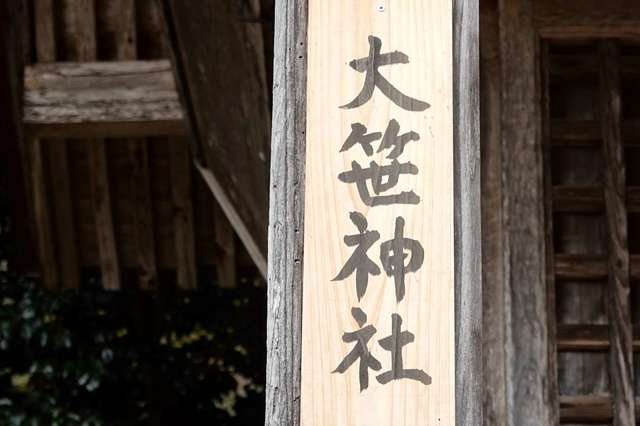 大笹神社